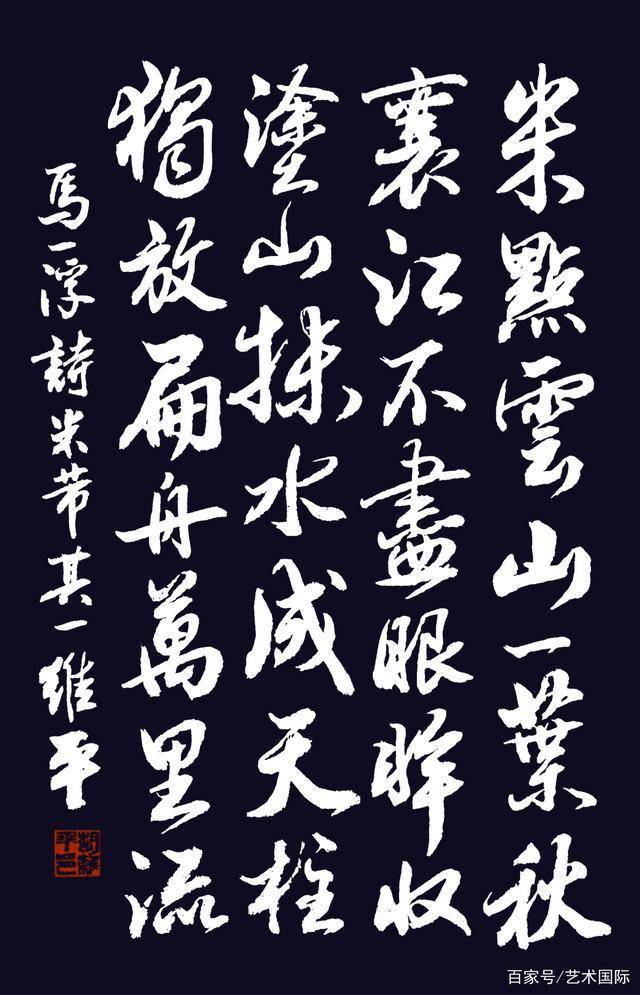 米點雲山一葉秋
襄江不盡眼眸收
塗山抹水成天柱
獨放扁舟萬里流
馬一浮詩米芾其一維平
百家号/艺术国际